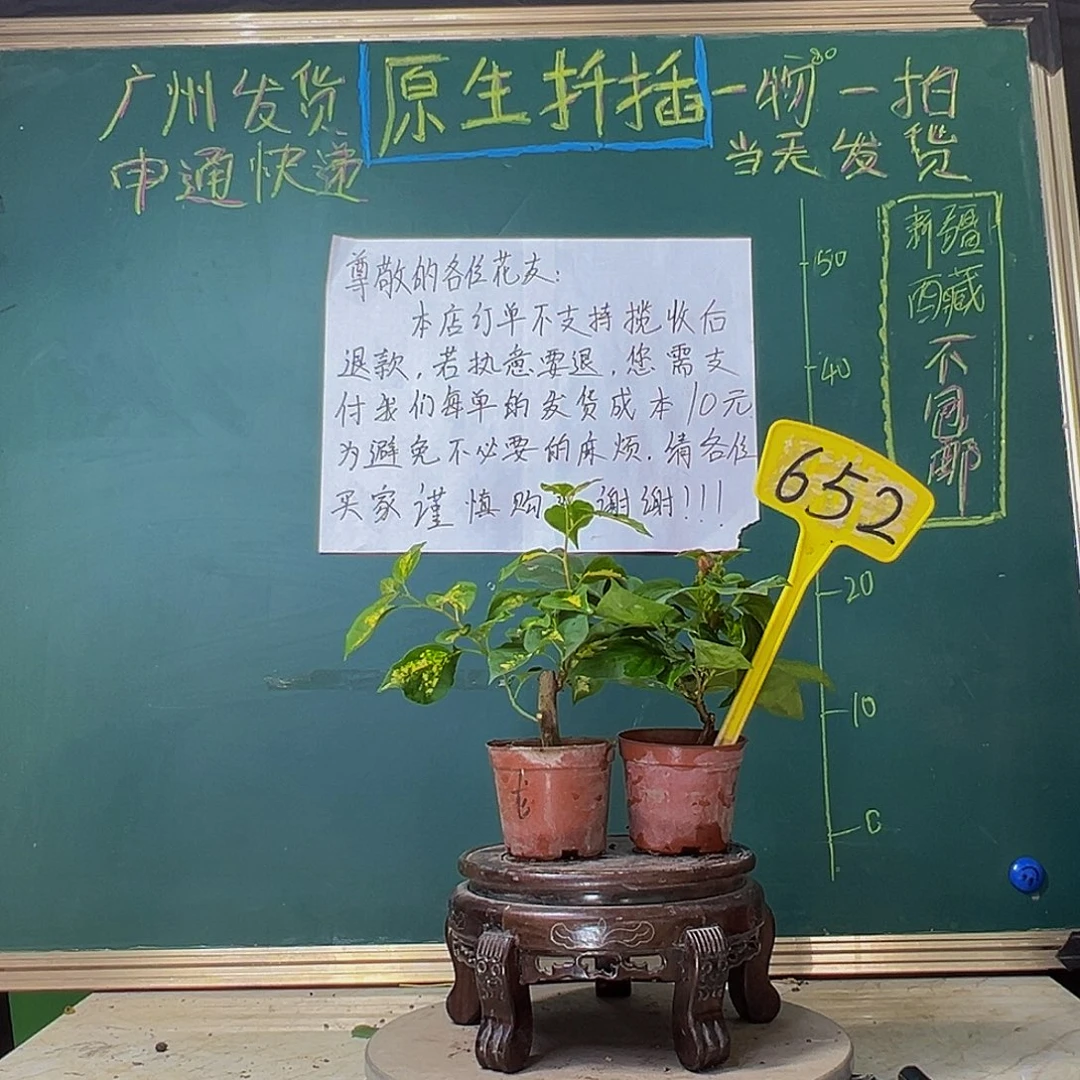 广州发货
申通快递
原生扦插
一物一拍
当天发货
新疆
西藏
不包邮
尊敬的各位花友:
本店订单不支持揽收后
退款,若执意要退,您需支
付我们每单的发货成本10元
为避免不必要的麻烦.请各位
买家谨慎购 谢谢!!!
652
50
40
20
10
0